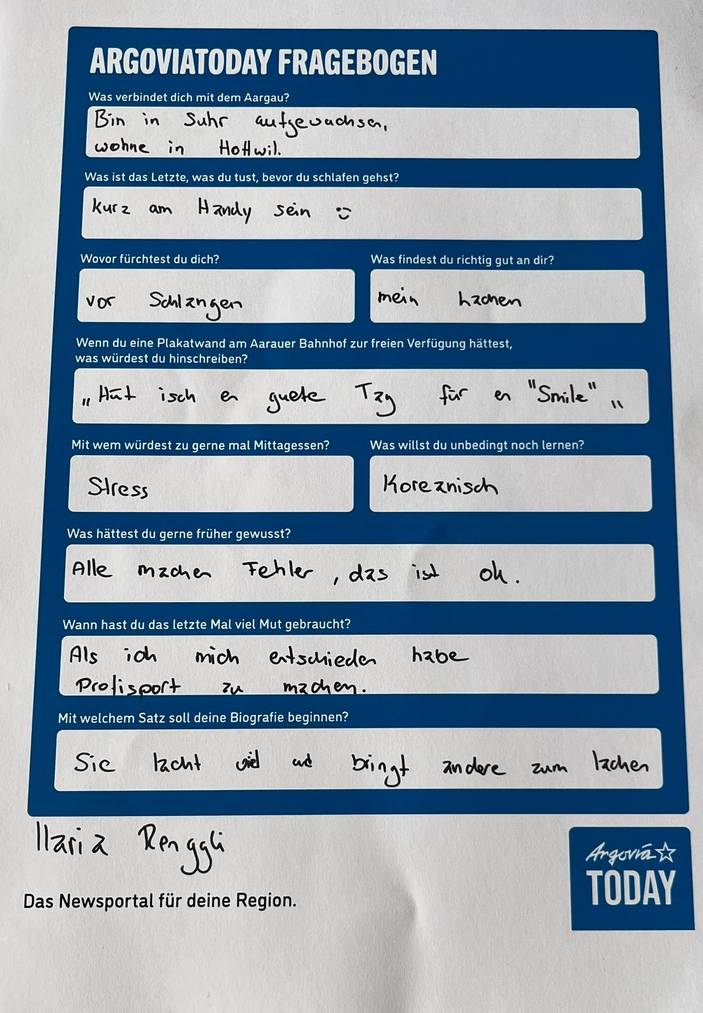 ARGOVIATODAY FRAGEBOGEN
Was verbindet dich mit dem Aargau?
Bin in Suhr aufgewachsen,
wohne in Hottwil.
Was ist das Letzte, was du tust, bevor du schlafen gehst?
kurz am Handy sein :)
Wovor fürchtest du dich?
vor Schlangen
Was findest du richtig gut an dir?
mein Lachen
Wenn du eine Plakatwand am Aarauer Bahnhof zur freien Verfügung hättest,
was würdest du hinschreiben?
„Hüt isch en guete Tag für en "Smile"„
Mit wem würdest zu gerne mal Mittagessen?
Stress
Was willst du unbedingt noch lernen?
Koreanisch
Was hättest du gerne früher gewusst?
Alle machen Fehler, das ist ok.
Wann hast du das letzte Mal viel Mut gebraucht?
Als ich mich entschieden habe
Profisport zu machen.
Mit welchem Satz soll deine Biografie beginnen?
Sie lacht viel und bringt andere zum lachen
Ilaria Renggli
Das Newsportal für deine Region.
Argovia
TODAY